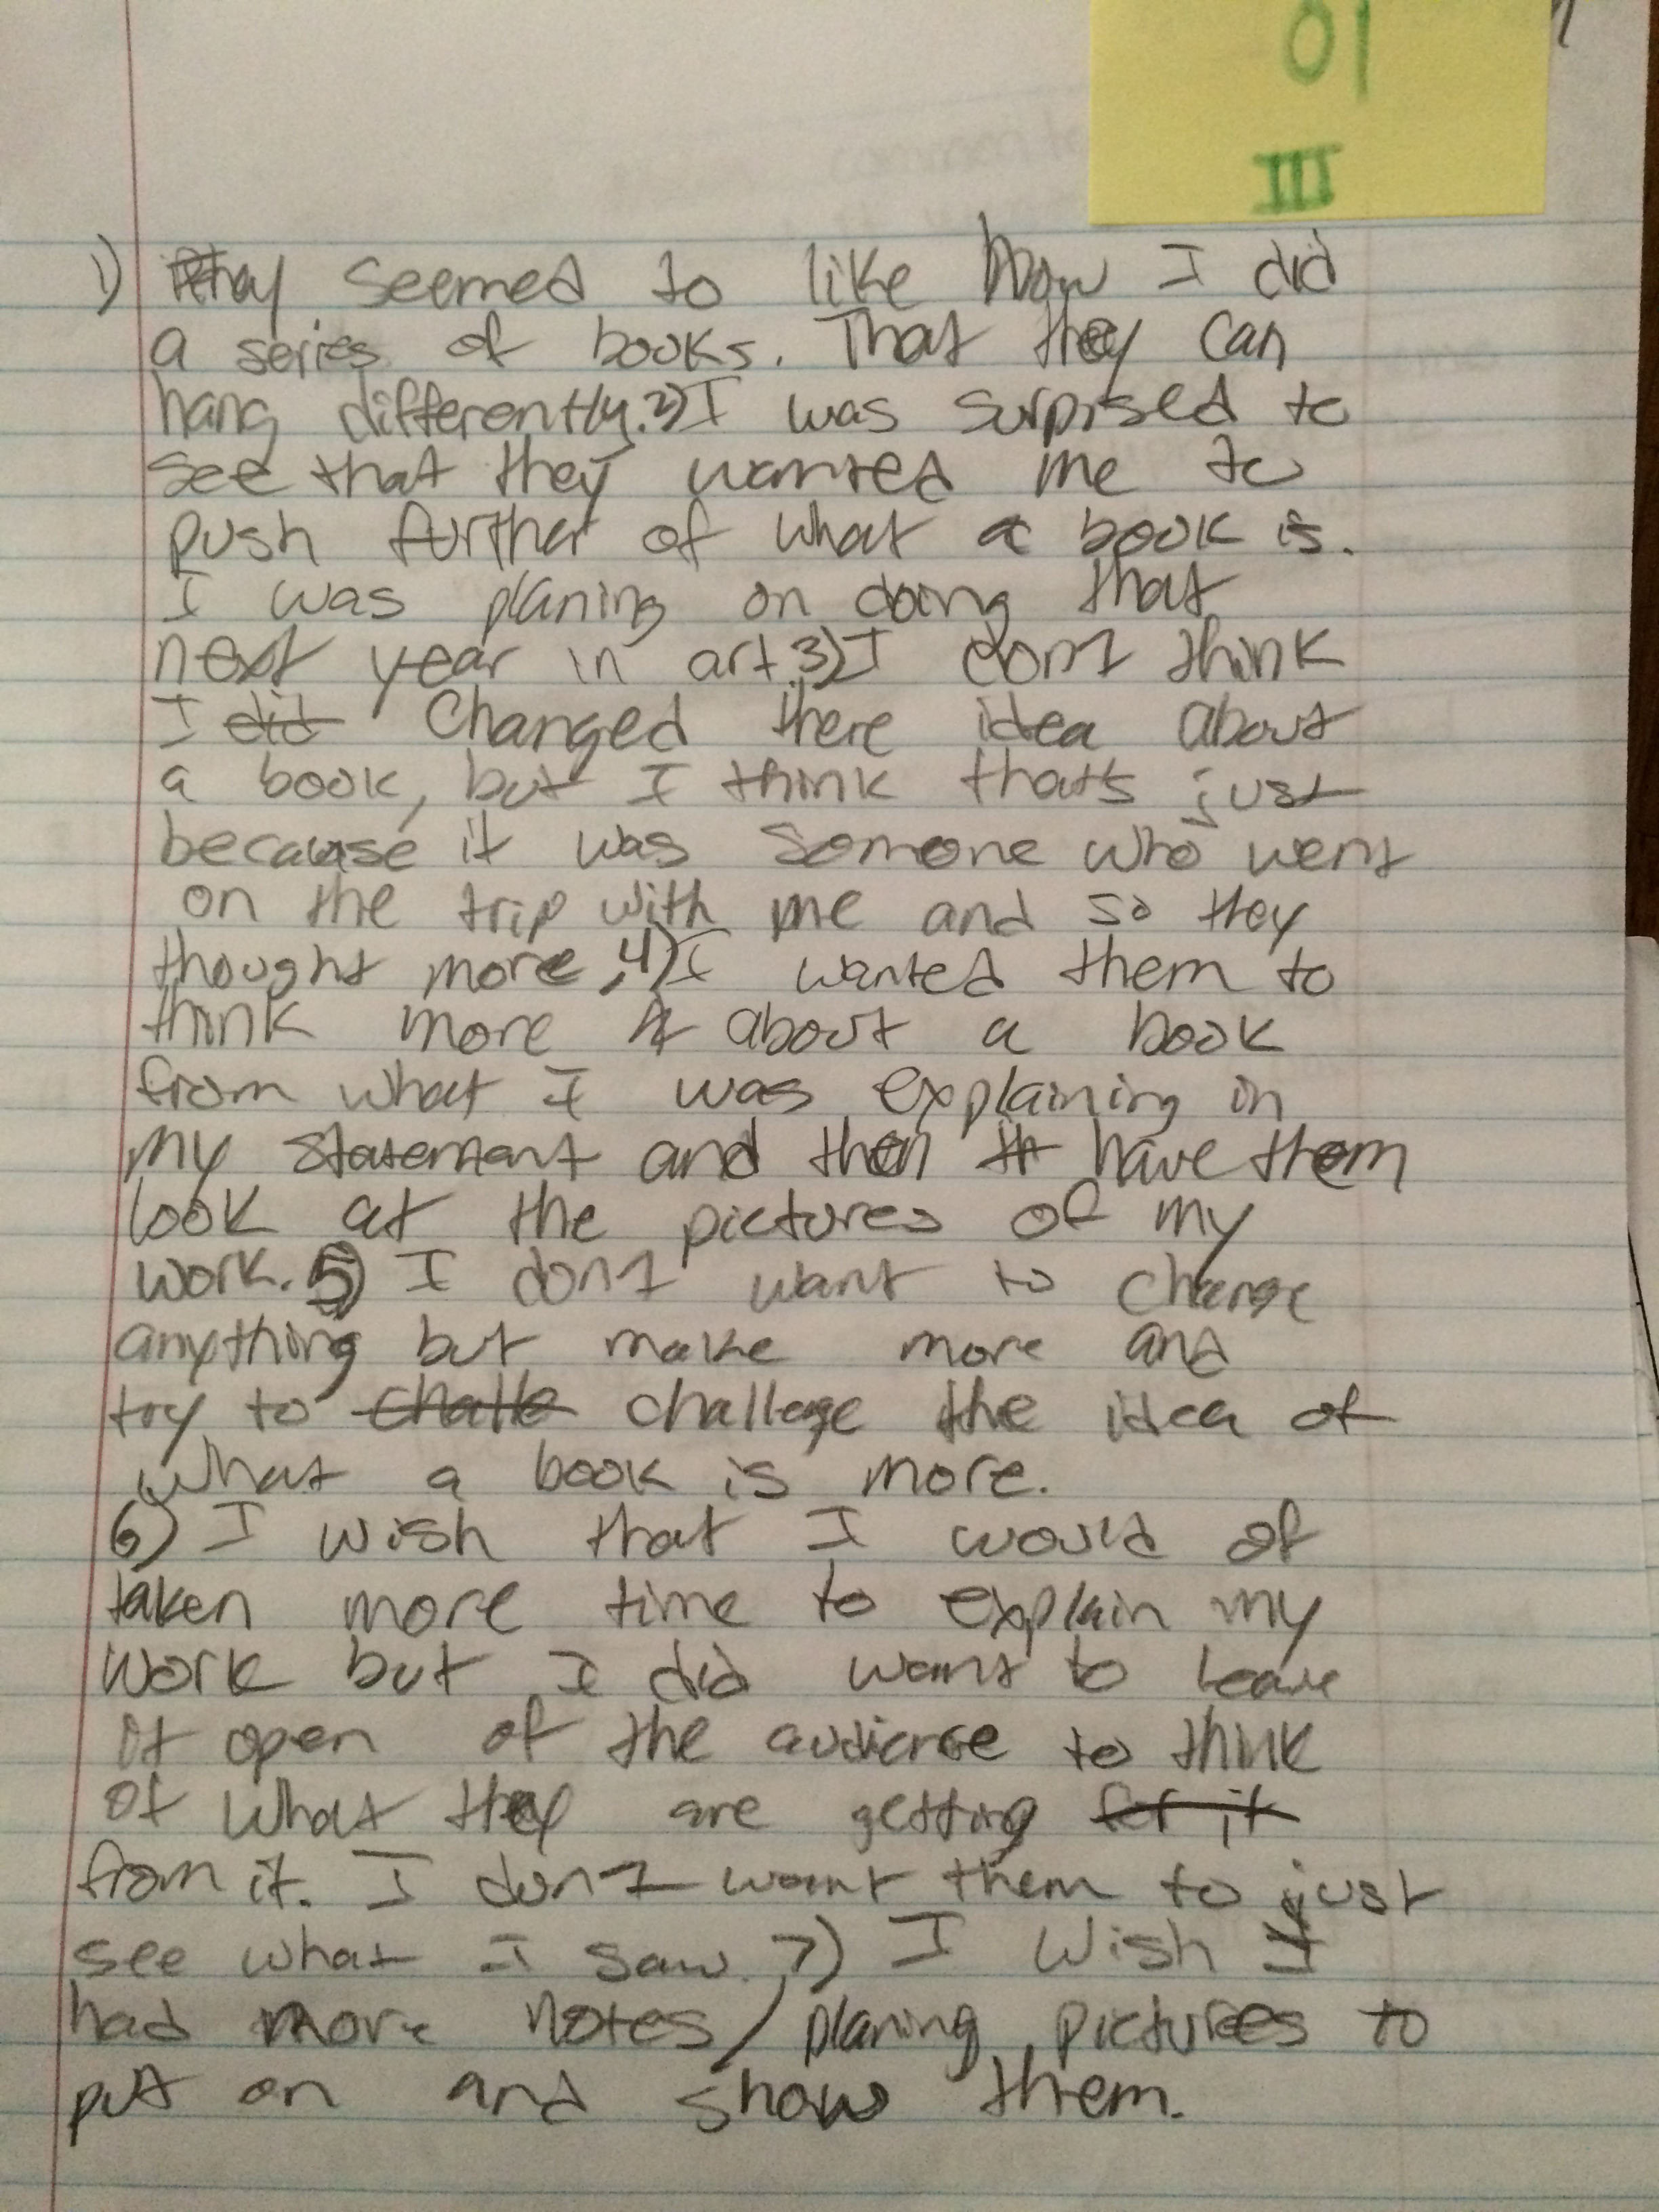 01
III
1) They seemed to like how I did
a series of books. That they can
hang differently. 2) I was surprised to
see that they wanted me to
push further of what a book is.
I was planing on doing that
next year in art. 3) I dont think
I did changed there idea about
a book, but I think thats just
because it was someone who went
on the trip with me and so they
thought more, 4) I wanted them to
think more about a book
from what I was explaining in
my statement and then have them
look at the pictures of my
work. 5) I dont want to change
anything but make more and
try to challe challege the idea of
what a book is more.
6) I wish that I would of
taken more time to explain my
work but I did want to leave
it open of the audience to think
of what they are getting for it
from it. I dont want them to just
see what I saw. 7) I wish I
had more notes/planing pictures to
put on and show them.